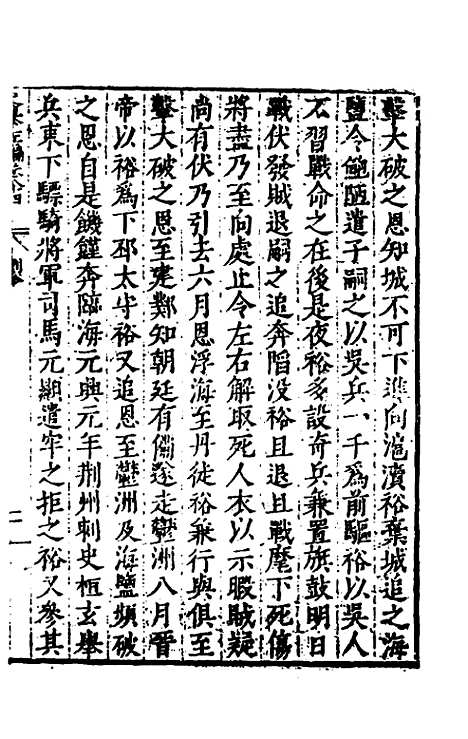 擊大破之恩知城不可下進向滬瀆裕棄城追之海
鹽令鮑陋遣子嗣之以吳兵一千爲前驅裕以吳人
不習戰命之在後是夜裕多設奇兵兼置旗鼓明日
戰伏發賊退嗣之追奔陷没裕且退且戰麾下死傷
將盡乃至向處止令左右解取死人衣以示暇賊疑
尚有伏乃引去六月恩浮海至丹徒裕兼行與俱至
擊大破之恩至建鄴知朝廷有備遂走鬱洲八月晉
帝以裕爲下邳太守裕又追恩至鬱洲及海鹽頻破
之恩自是饑饉奔臨海元興元年荆州刺史桓玄舉
兵東下驃騎將軍司馬元顯遣牢之拒之裕又參其